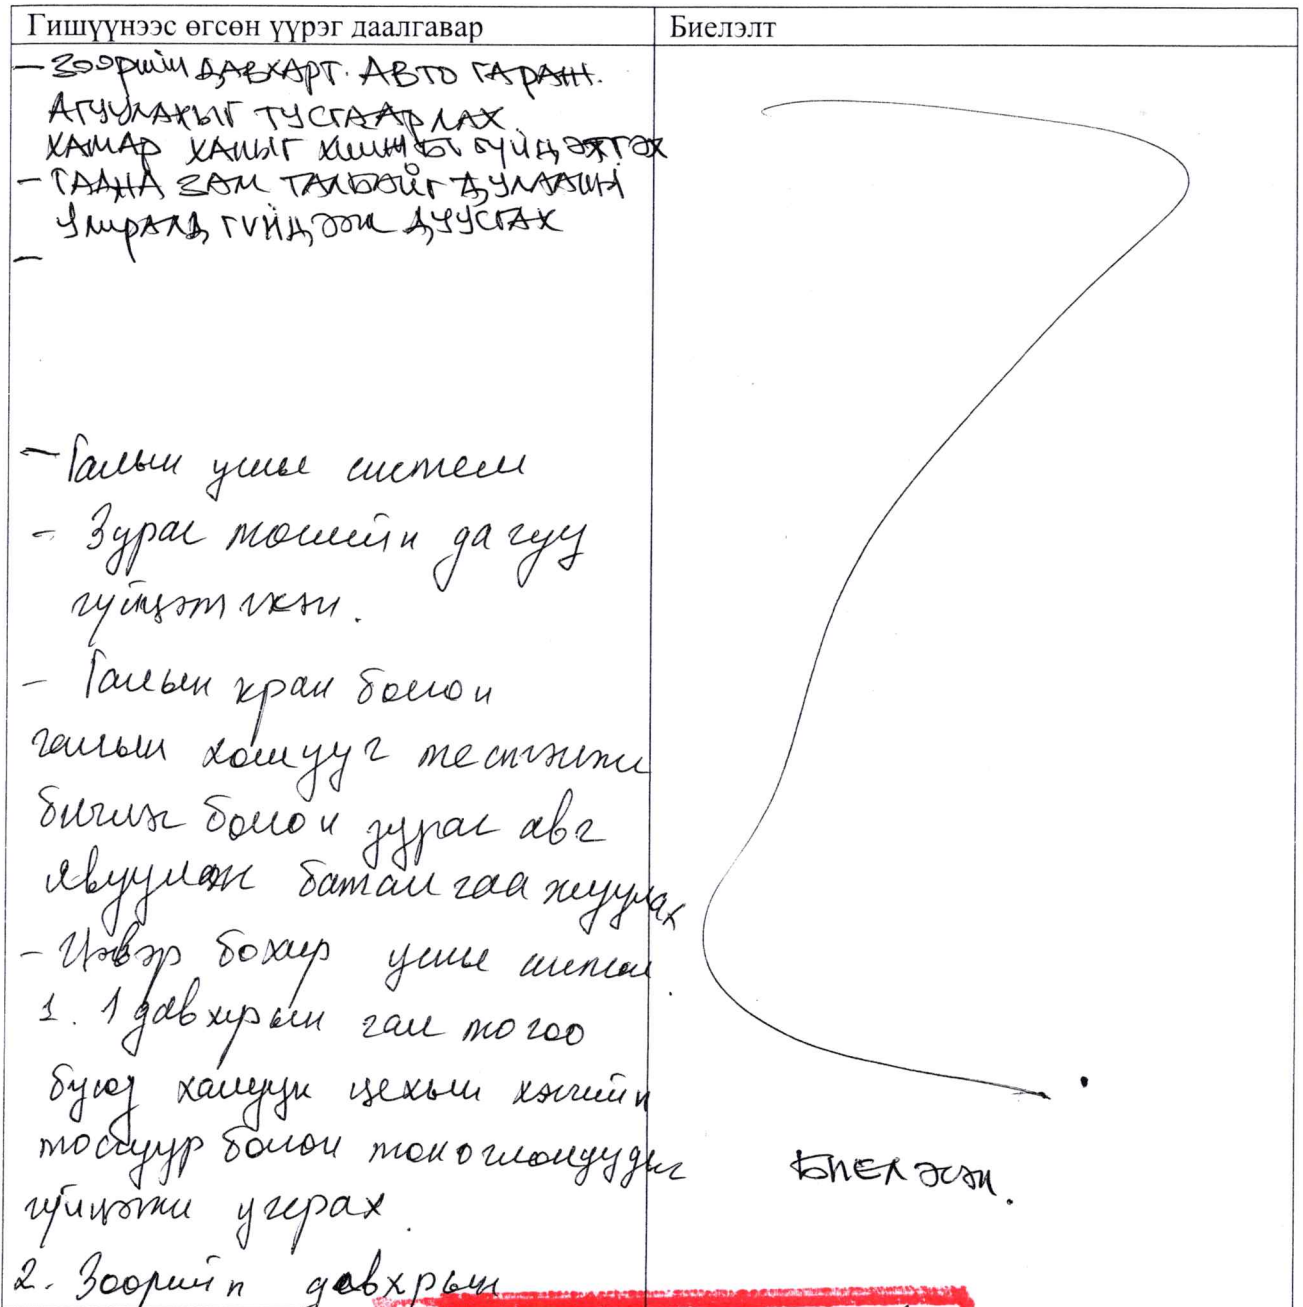 Гишүүнээс өгсөн үүрэг даалгавар
Биелэлт
- Зоорийн давхарт. Авто гараж.
Агуулахыг тусгаарлах
хамар ханыг хийж бүр гүйцэтгэх
- Гадна зам талбайг дулааны
улиралд гүйцээж дуусгах
-
- Галын усны систем
- Зураг төслийн дагуу
гүйцэтгэсэн.
- Галын кран болон
галын хошууг тестлэж
бичлэг болон зураг авч
явуулж баталгаажуулах
- Цэвэр бохир усны систем
1. 1 давхрын гал тогоо
буюу халуун цехын хэсгийн
тосгуур болон тоноглолуудыг
гүйцээж угсрах.
Биелэсэн.
2. Зоорийн давхрын